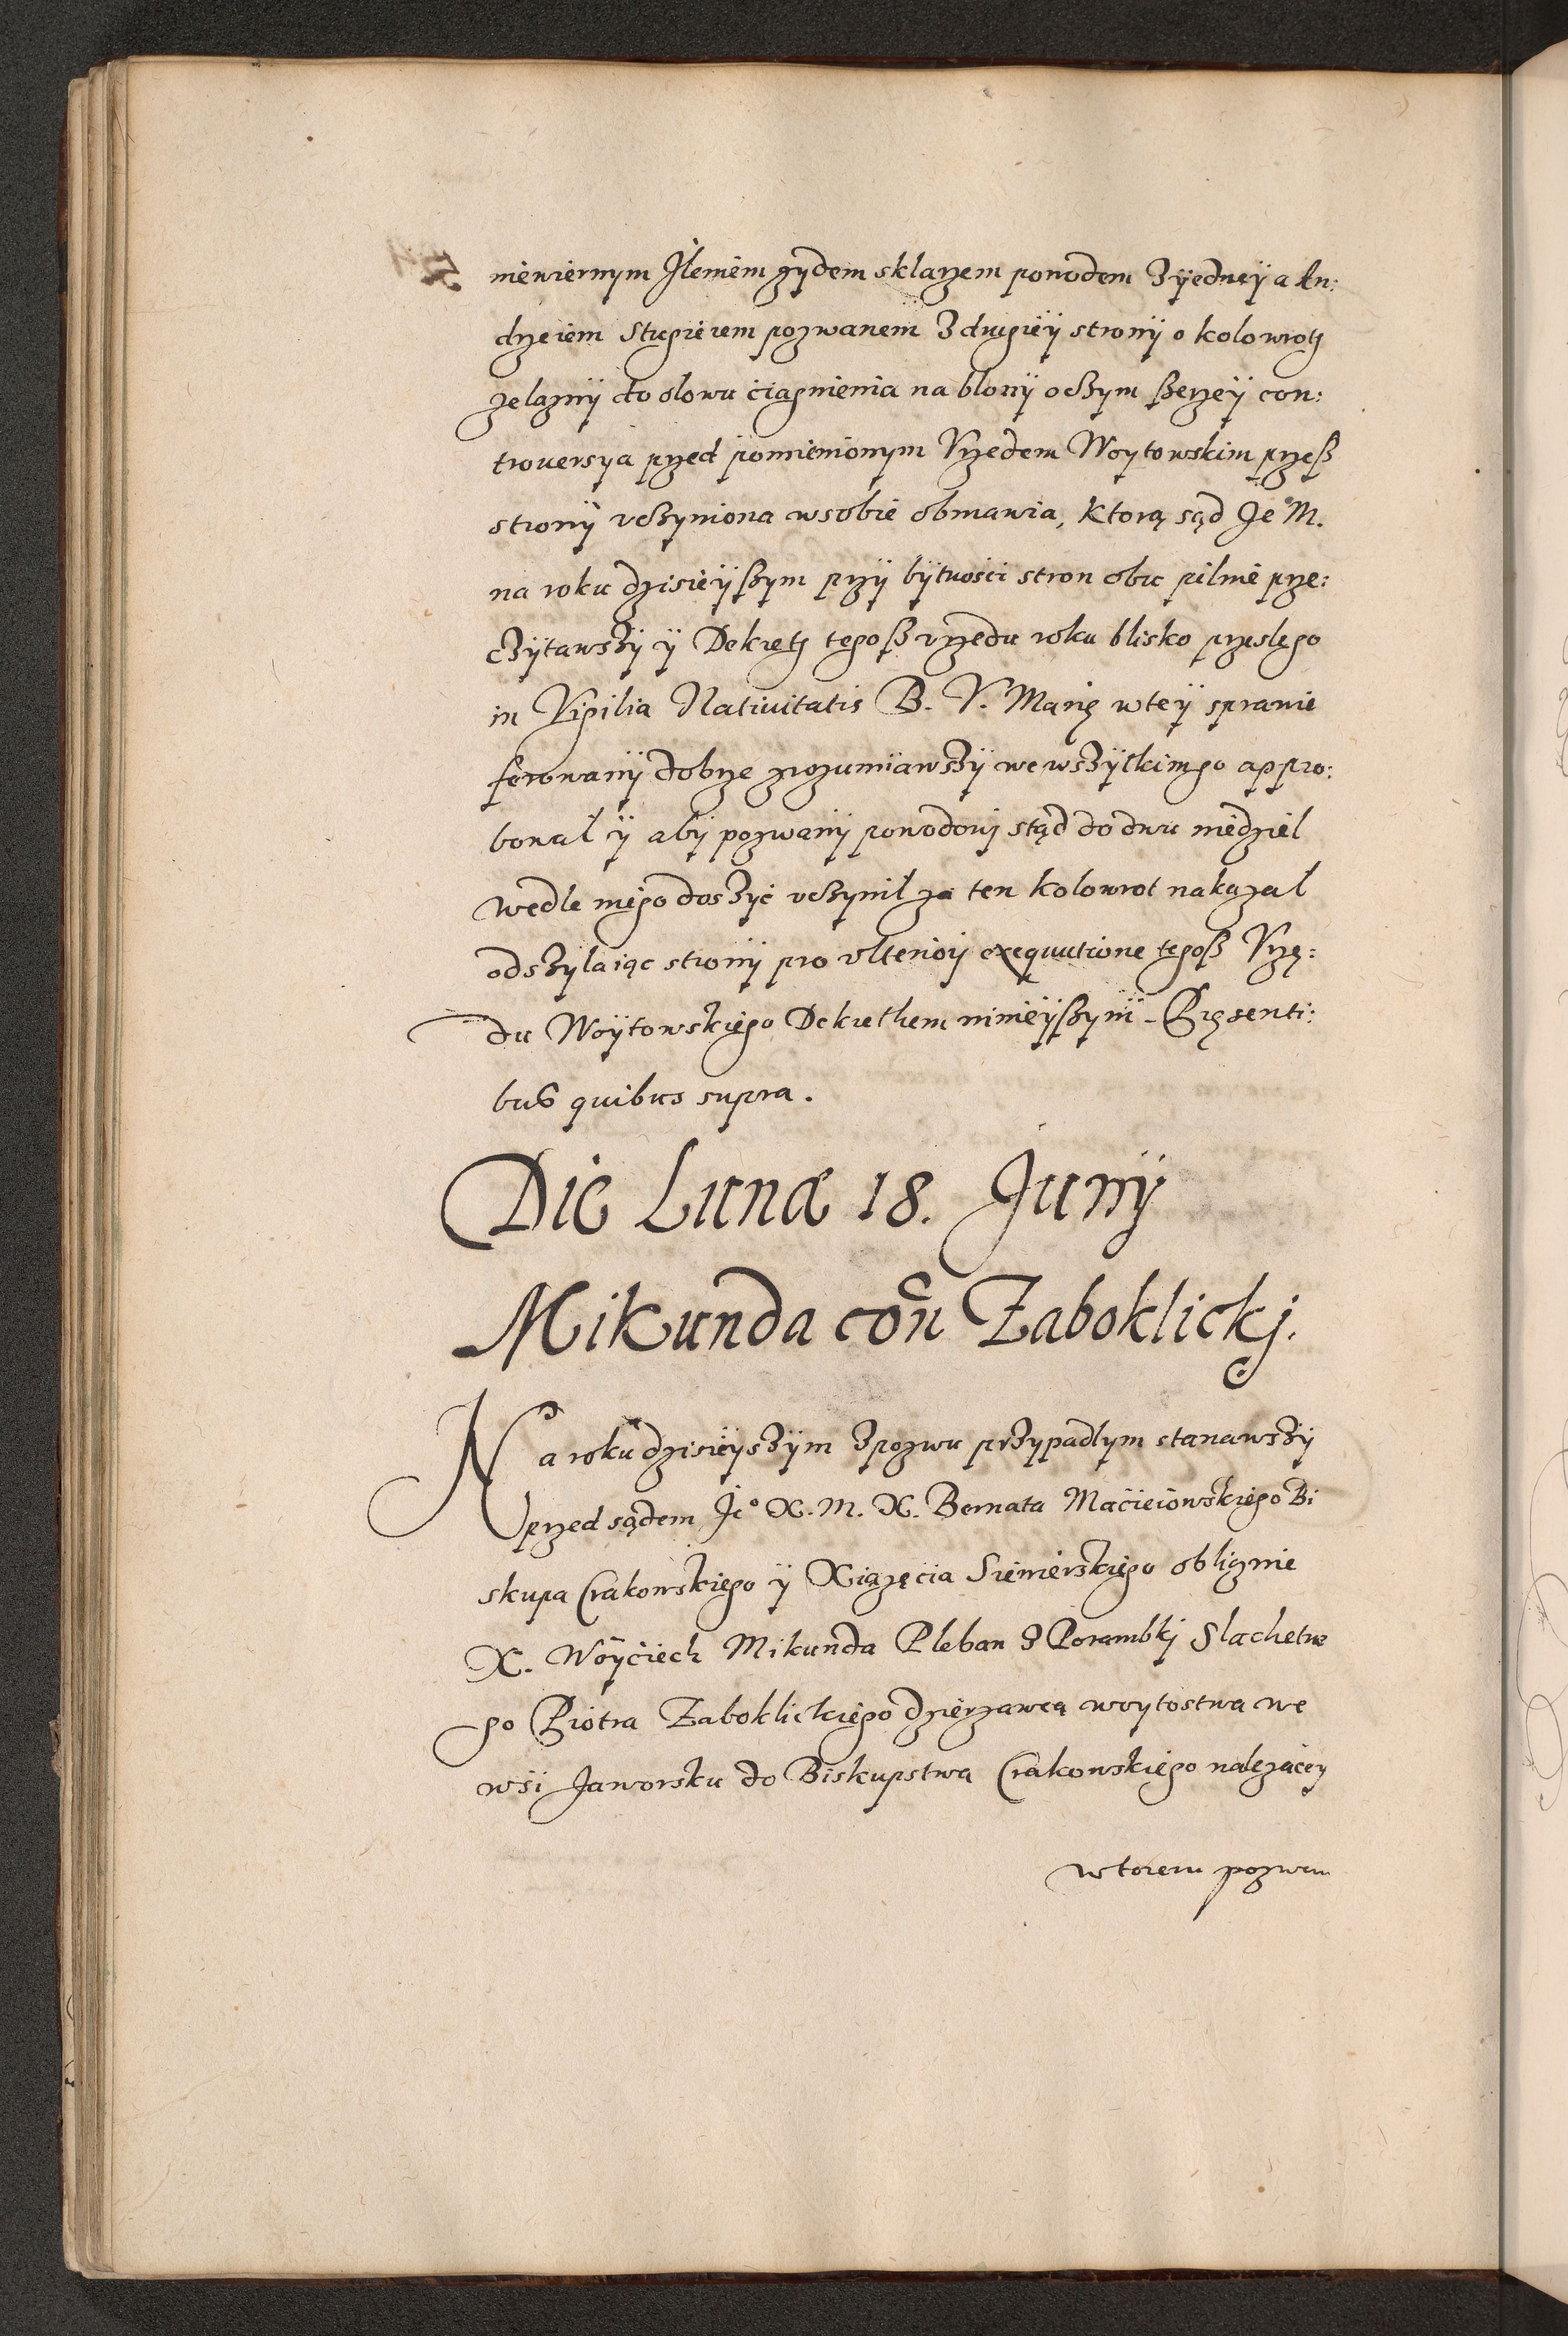 niewiernym Jleniem zydem sklarzem powodem Z ÿedneÿ a An:
drzeiem Stugierem pozwanem Z drugieÿ stronÿ o kolowroth
zelaznÿ do olowu ciagnienia na blonÿ oczym szerzeÿ con:
trouersya przed pomienionym Vrzedem Woytowskim przesz
stronÿ vczyniona wsobie obmawia, Ktorą sąd Je° M.
na roku dzisieÿszym przÿ bÿtności stron obu pilnie prze:
czÿtawszÿ ÿ Dekreth tegosz vrzedu roku blisko przeslego
in Vigilia Natiuitatis B. V. Marię wteÿ sprawie
ferowanÿ dobrze zrozumiawszÿ wewszÿtkim go appro:
bował ÿ abÿ pozwanÿ powodowj stąd do dwu niedziel
wedle niego doszÿć vczynił za ten kolowrot nakazał
odszÿlaiąc stronÿ pro vlteriorj exequutione tegosz Vrzę:
du Woÿtowskiego Dekrethem ninieÿszym - Pręsenti:
bus quibus supra.
Die Lunæ 18. Junÿ
Mikunda coñ Zaboklickj.
Na roku dzisieÿszÿm Z pozwu przypadlym stanawszÿ
przed sądem Je° X. M. X. Bernata Macieiowskiego Bi
skupa Crakowskiego ÿ Xiążęcia Siewierskiego oblicznie
X. Woÿciech Mikunda Pleban Z Porambkj Slachetne
go Piotra Zaboklickiego dzierzawcą woytostwa we
wsi Jaworsku do Biskupstwa Crakowskiego nalezącey
wtorem pozwem